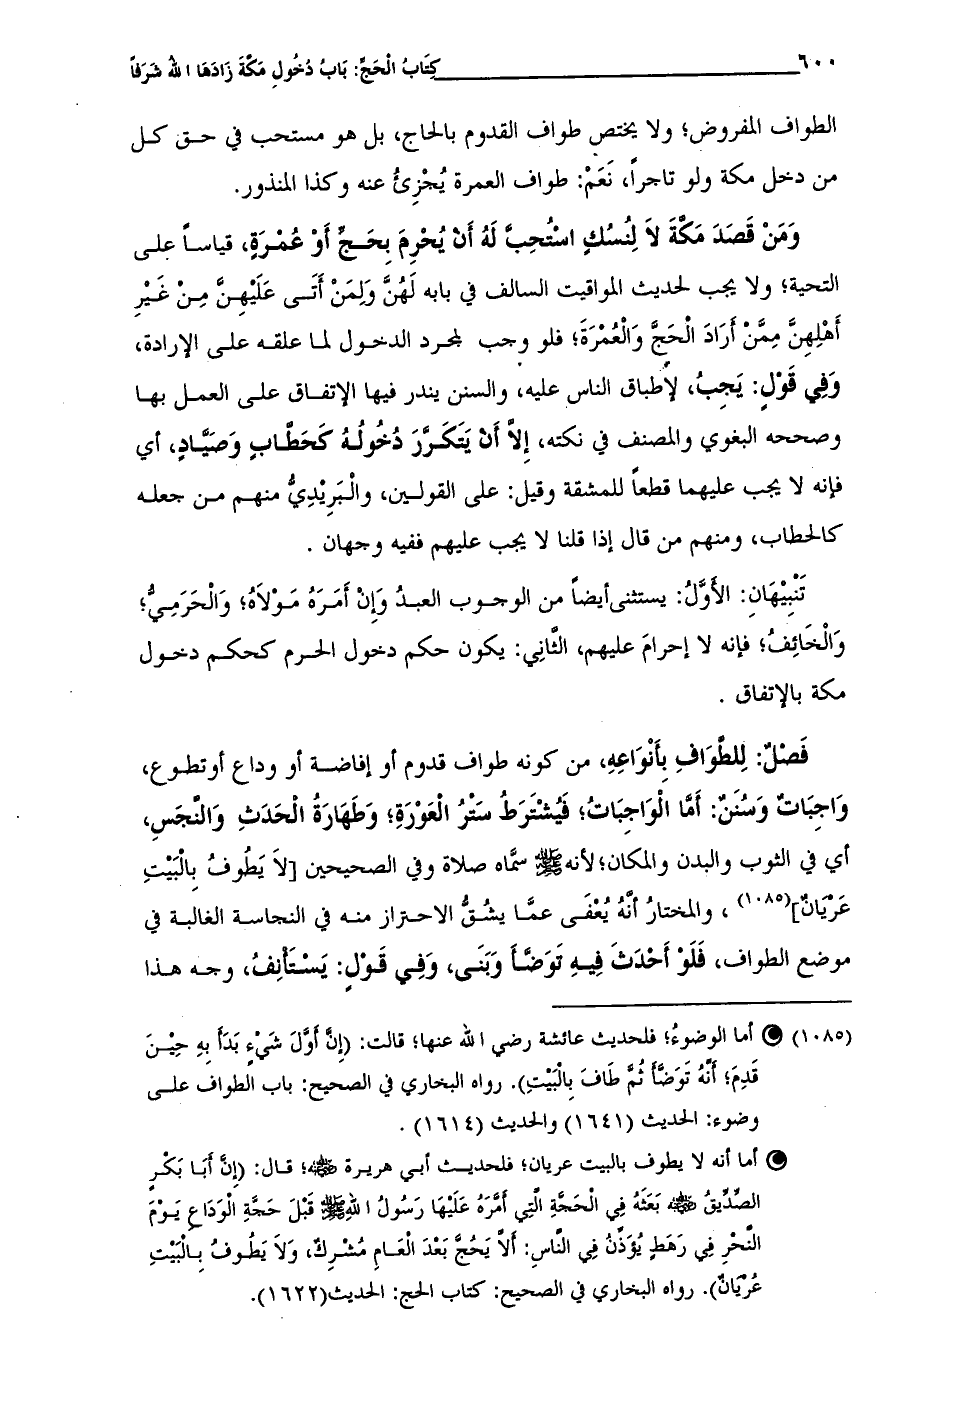 ٦٠٠ كِتَابُ الْحَجِّ: بَابُ دُخُولِ مَكَّةَ زَادَهَا اللهُ شَرَفاً
الطواف المفروض؛ ولا يختص طواف القدوم بالحاج، بل هو مستحب في حق كل
من دخل مكة ولو تاجراً، نَعَمْ: طواف العمرة يُجْزِئُ عنه وكذا المنذور.
وَمَنْ قَصَدَ مَكَّةَ لاَ لِنُسُكٍ اسْتُحِبَّ لَهُ أَنْ يُحْرِمَ بِحَجٍّ أَوْ عُمْرَةٍ، قياساً على
التحية؛ ولا يجب لحديث المواقيت السالف في بابه لَهُنَّ وَلِمَنْ أَتَى عَلَيْهِنَّ مِنْ غَيْرِ
أَهْلِهِنَّ مِمَّنْ أَرَادَ الْحَجَّ وَالْعُمْرَةَ؛ فلو وجب لمجرد الدخول لما علقه على الإرادة،
وَفِي قَوْلٍ: يَجِبُ، لإطباق الناس عليه، والسنن يندر فيها الإتفاق على العمل بها
وصححه البغوي والمصنف في نكته، إِلاَّ أَنْ يَتَكَرَّرَ دُخُولُهُ كَحَطَّابٍ وَصَيَّادٍ، أي
فإنه لا يجب عليهما قطعاً للمشقة وقيل: على القولين، والْبَرِيْدِيُّ منهم من جعله
كالحطاب، ومنهم من قال إذا قلنا لا يجب عليهم ففيه وجهان .
تَنْبِيْهَانِ: الأَوَّلُ: يستثنى أيضاً من الوجوب العبدُ وَإِنْ أَمَرَهُ مَوْلاَهُ؛ وَالْحَرَمِيُّ؛
وَالْخَائِفُ؛ فإنه لا إحرامَ عليهم، الثَّانِي: يكون حكم دخول الحرم كحكم دخول
مكة بالإتفاق .
فَصْلٌ: لِلطَّوَافِ بِأَنْوَاعِهِ، من كونه طواف قدوم أو إفاضة أو وداع أوتطوع،
وَاجِبَاتٌ وَسُنَنٌ: أَمَّا الْوَاجِبَاتُ؛ فَيُشْتَرَطُ سَتْرُ الْعَوْرَةِ؛ وَطَهَارَةُ الْحَدَثِ وَالنَّجَسِ،
أي في الثوب والبدن والمكان؛ لأنه ﷺ سمَّاه صلاة وفي الصحيحين [لاَ يَطُوفُ بِالْبَيْتِ
عَرْيَانٌ](١٠٨٥) ، والمختارُ أنَّهُ يُعْفَى عمَّا يشُقُّ الاحتراز منه في النجاسة الغالبة في
موضع الطواف، فَلَوْ أَحْدَثَ فِيهِ تَوَضَّأَ وَبَنَى، وَفِي قَوْلٍ: يَسْتَأْنِفُ، وجه هذا
(١٠٨٥) أما الوضوءُ؛ فلحديث عائشة رضي الله عنها؛ قالت: (إِنَّ أَوَّلَ شَيْءٍ بَدَأَ بِهِ حِيْنَ
قَدِمَ؛ أَنَّهُ تَوَضَّأَ ثُمَّ طَافَ بِالْبَيْتِ). رواه البخاري في الصحيح: باب الطواف على
وضوء: الحديث (١٦٤١) والحديث (١٦١٤) .
أما أنه لا يطوف بالبيت عريان؛ فلحديث أبي هريرة ﷺ؛ قال: (إِنَّ أَبَا بَكْرٍ
الصِّدِّيقُ ﷺ بَعَثَهُ فِي الْحَجَّةِ الَّتِي أَمَّرَهُ عَلَيْهَا رَسُولُ اللهِ ﷺ قَبْلَ حَجَّةِ الْوَدَاعِ يَوْمَ
النَّحْرِ فِي رَهَطٍ يُؤَذِّنُ فِي النَّاسِ: أَلاَّ يَحُجَّ بَعْدَ الْعَامِ مُشْرِكٌ، وَلاَ يَطُوفُ بِالْبَيْتِ
عُرْيَانٌ). رواه البخاري في الصحيح: كتاب الحج: الحديث(١٦٢٢).